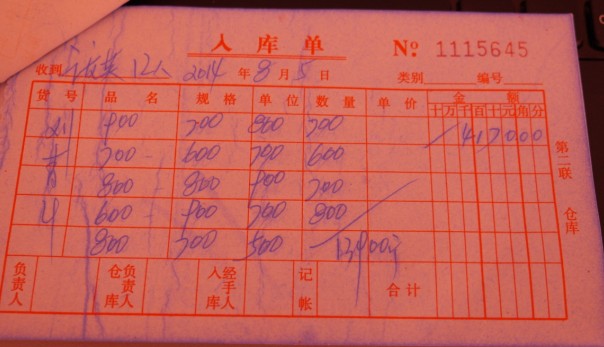 入库单 № 1115645
收到 12人 2014年8月5日 类别 编号
货号 品名 规格 单位 数量 单价 金额
十万千百十元角分
900 700 800 700
700 600 700 600
800 800 900 700
600 900 700 800
800 700 500
13900元
第二联 仓库
负责人 仓库负责人 入库经手人 记帐 合计